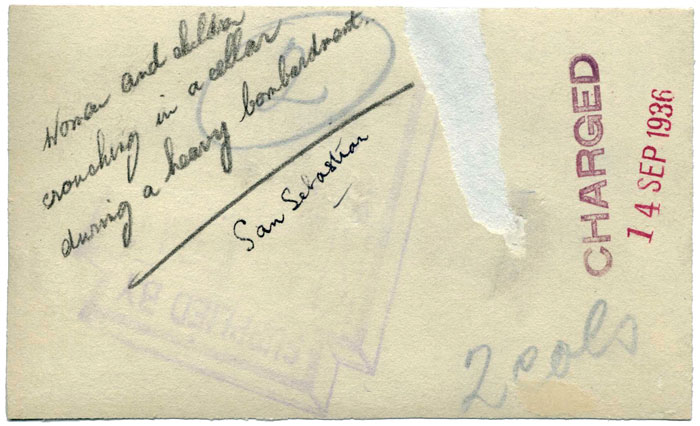 Women and children
crouching in a cellar
during a heavy bombardment.
2
San Sebastian
CHARGED
14 SEP 1936
SUPPLIED BY
2 cols